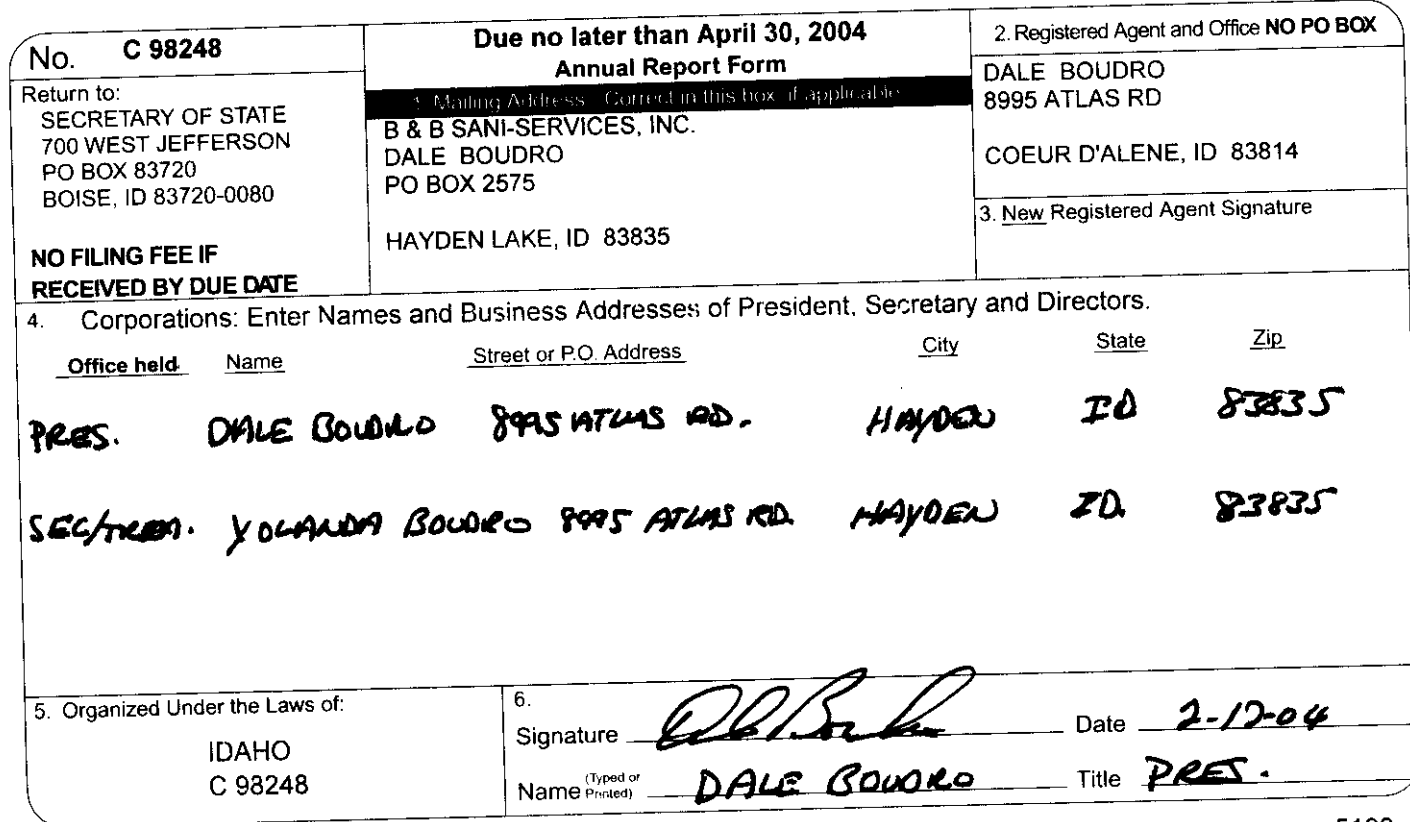 No. C 98248
Return to:
SECRETARY OF STATE
700 WEST JEFFERSON
PO BOX 83720
BOISE, ID 83720-0080
NO FILING FEE IF
RECEIVED BY DUE DATE
Due no later than April 30, 2004
Annual Report Form
1. Mailing Address: Correct in this box, if applicable
B & B SANI-SERVICES, INC.
DALE BOUDRO
PO BOX 2575
HAYDEN LAKE, ID 83835
2. Registered Agent and Office NO PO BOX
DALE BOUDRO
8995 ATLAS RD
COEUR D'ALENE, ID 83814
3. New Registered Agent Signature
4. Corporations: Enter Names and Business Addresses of President, Secretary and Directors.
Office held Name Street or P.O. Address City State Zip
PRES. DALE BOUDRO 8995 ATLAS RD. HAYDEN ID 83835
SEC/TREA. YOLANDA BOUDRO 8995 ATLAS RD. HAYDEN ID. 83835
5. Organized Under the Laws of:
IDAHO
C 98248
6.
Signature Date 2-17-04
Name (Typed or Printed) DALE BOUDRO Title PRES.